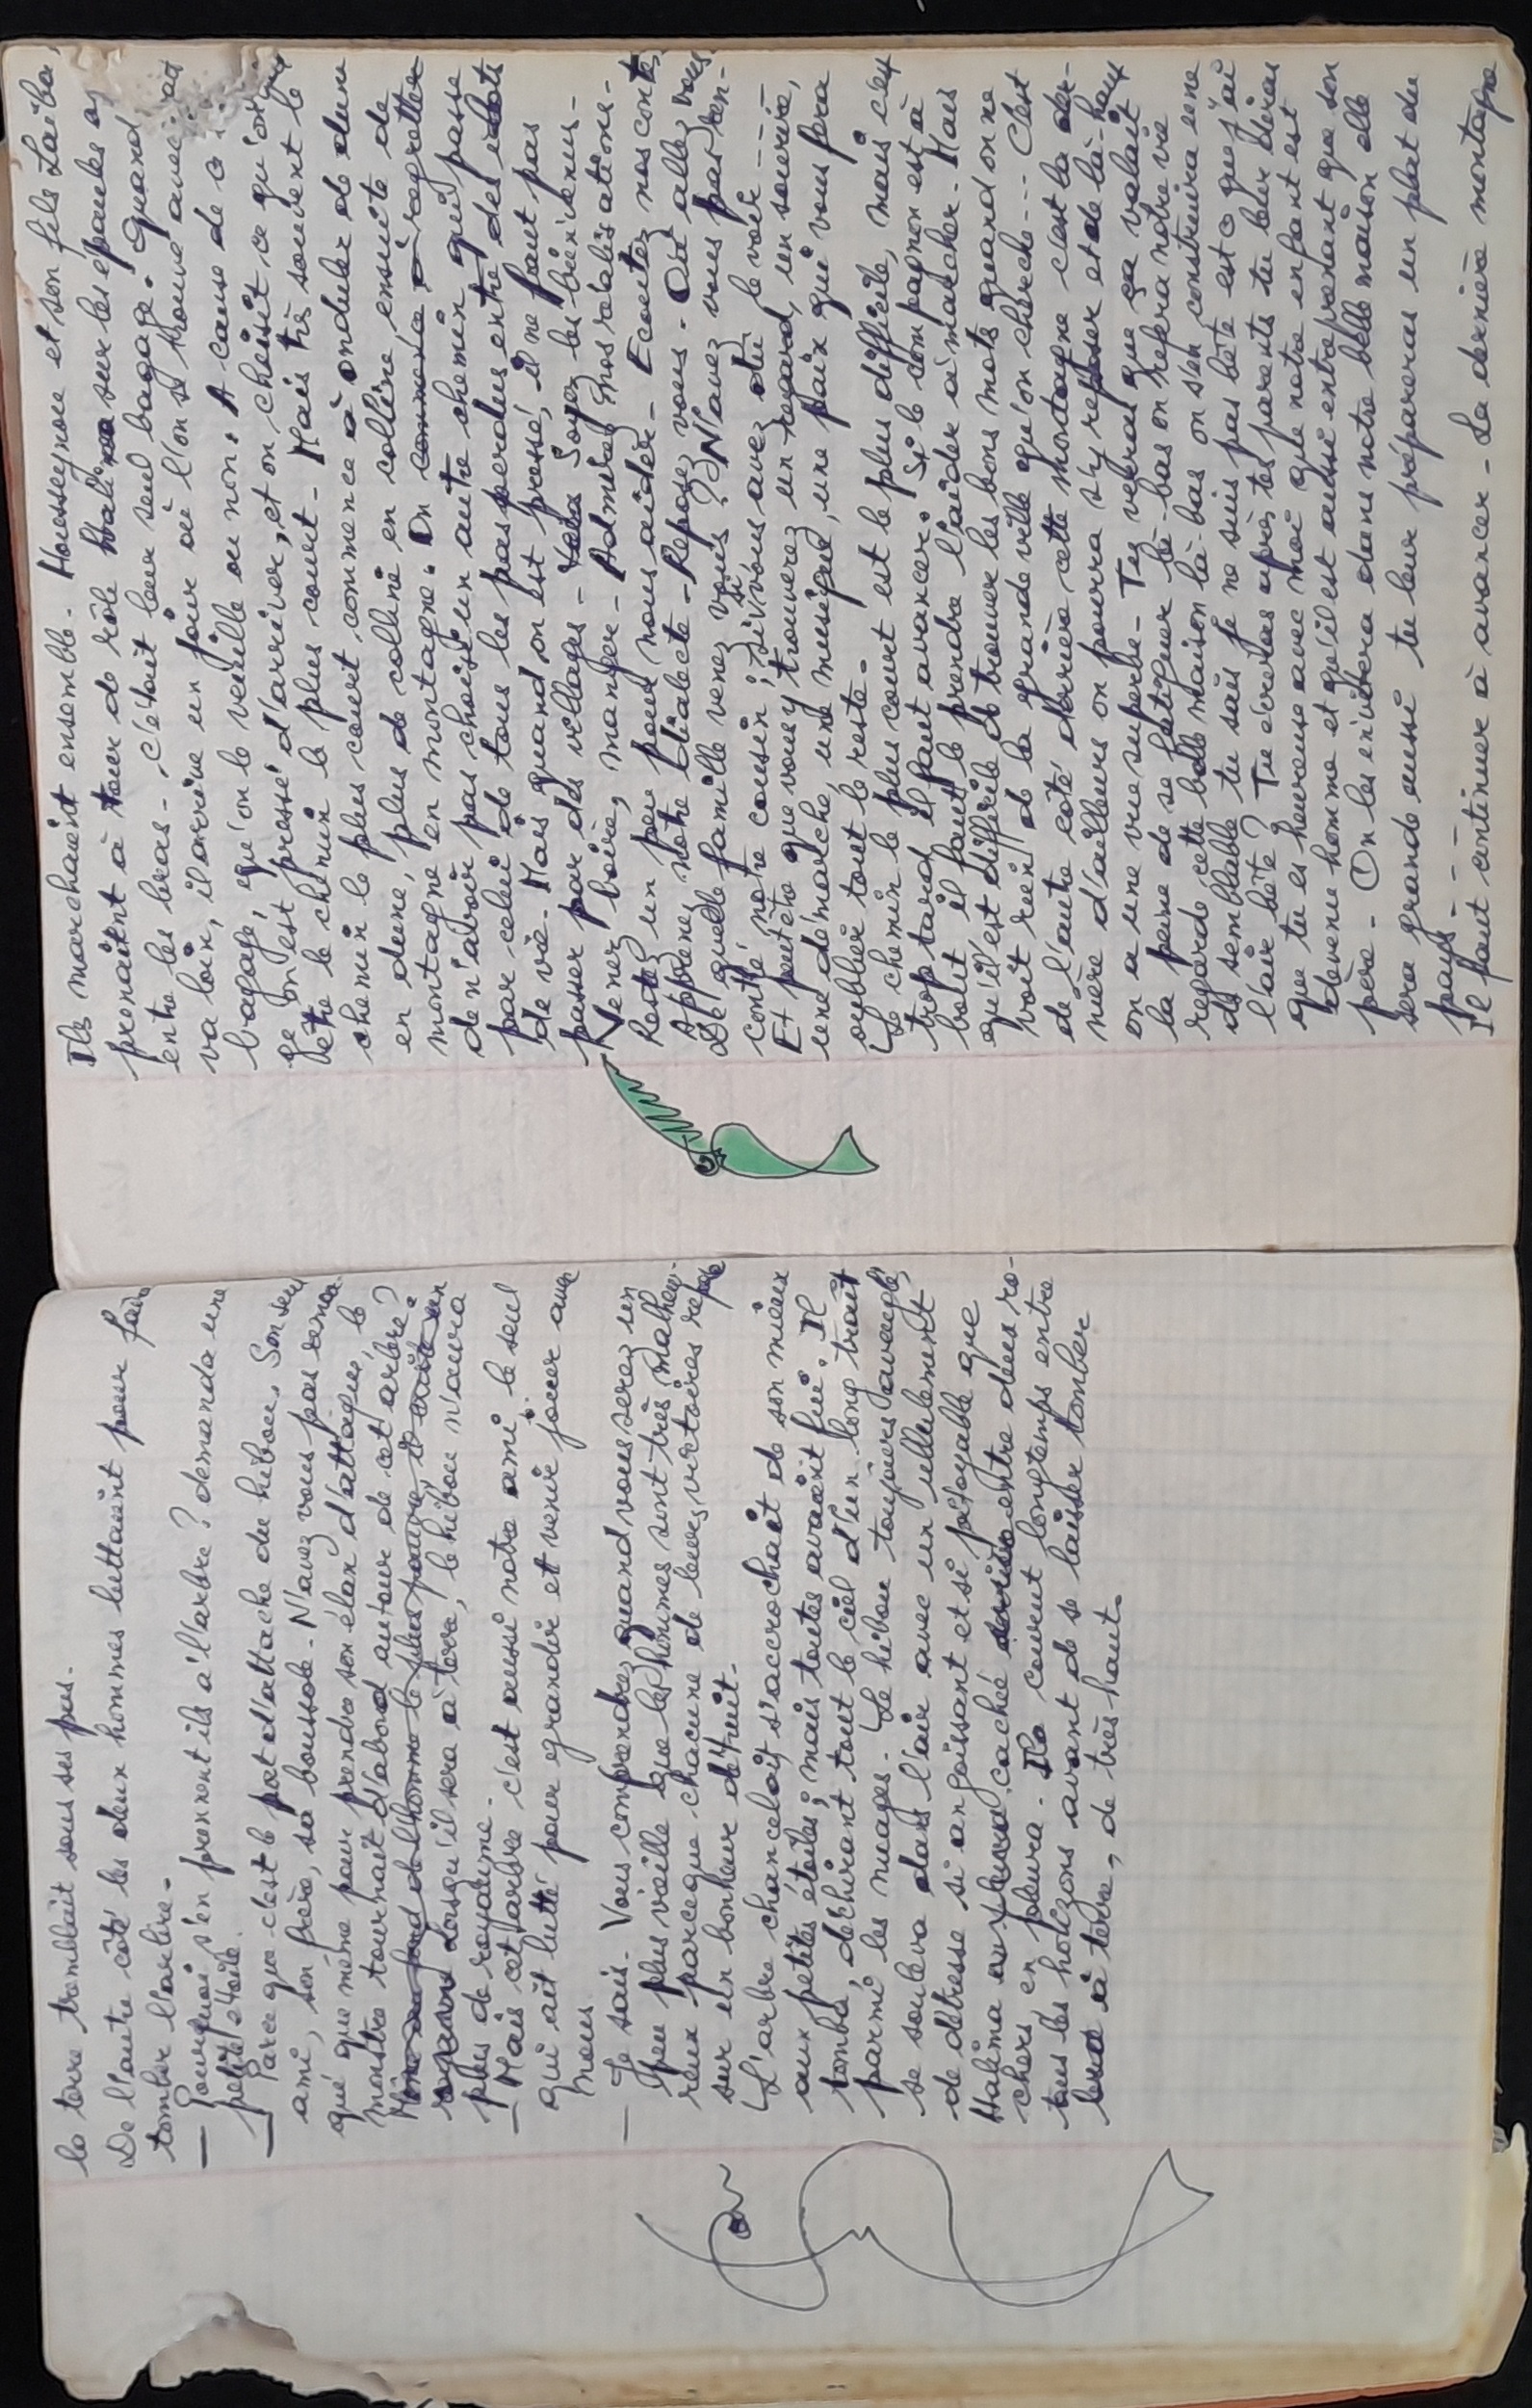 la terre tremblait sous ses pas.
De l'autre côté les deux hommes luttaient pour faire
tomber l'arbre.
— Pourquoi s'en prennent ils à l'arbre ? demanda une
petite étoile.
— Parce que c'est le port d'attache du hibou, Son seul
ami, son frère, sa boussole. N'avez vous pas remar
qué que même pour prendre son élan d'attaque, le
monstre tournait d'abord autour de cet arbre ?
Lorsqu'il sera à terre, le hibou n'aura
plus de royaume.
— Mais cet arbre c'est aussi notre ami, le seul
qui ait lutté pour grandir et venir jouer avec
nous.
— Je sais. Vous comprendrez quand vous serez un
peu plus vieille que les hommes sont très malheu-
reux parceque chacune de leurs victoires repose
sur un bonheur détruit.
L'arbre chancelait s'accrochait de son mieux
aux petites étoiles, mais toutes avaient fui. Il
tomba, déchirant tout le ciel d'un long trait
parmi les nuages. Le hibou toujours aveuglé,
se souleva dans l'air avec un ullulement
de détresse si angoissant et si pitoyable que
Halima cachée entre deux ro-
chers en pleura. Ils courent longtemps entre
tous les horizons avant de se laisser tomber
à terre, de très haut.
Ils marchaient ensemble. Housseynou et son fils Laïba,
prenaient à tour de rôle Hali sur les épaules ou
entre les bras. C'était leur seul bagage. Quand
va loin, il arrive un jour où l'on se trouve avec un
bagage, qu'on le veuille ou non. A cause de c
ge on est pressé d'arriver, et on choisit ce qu'on
être le chemin le plus court. Mais très souvent le
chemin le plus court commence à onduler de dune
en dune, plus de colline en colline, ensuite de
montagne en montagne. On commence à regretter
de n'avoir pas choisi un autre chemin qui passe
par celui de tous les pas perdus entre des ilots
de vie. Mais quand on est pressé, il ne faut pas
passer par des villages. Soyez les bienvenus.
Venez boire, manger. Admirez nos réalisations.
Restez un peu pour nous aider. Ecoutez nos contes,
Apprenez notre dialecte. Reposez vous. Où allez vous
De quelle famille venez vous ? N'avez vous pas ren-
contré notre cousin ; si vous avez dû le voir ---
Et peut être que vous y trouverez un regard, un sourire,
une démarche, une musique, une paix qui vous fera
oublier tout le reste.
Le chemin le plus court est le plus difficile, mais c'est
trop tard il faut avancer. Si le compagnon est à
bout il faut le prendre l'aider à marcher. Mais
qu'il est difficile de trouver les bons mots quand on ne
voit rien de la grande ville qu'on cherche --- C'est
de l'autre côté derrière cette montagne c'est la der-
nière d'ailleurs on pourra s'y reposer et de là-haut
on a une vue superbe. Tu verras que ça valait
la peine de se fatiguer là-bas on refera notre vie
regarde cette belle maison là-bas on s'en construira une
de semblable tu sais je ne suis pas bête est ce que j'ai
l'air bête ? Tu écriras après tes parents tu leur diras
que tu es heureuse avec moi que notre enfant est
devenu homme et qu'il est aussi entreprenant que son
père. On les invitera dans notre belle maison elle
sera grande aussi tu leur prépareras un plat du
pays ---
Il faut continuer à avancer. La dernière montagne